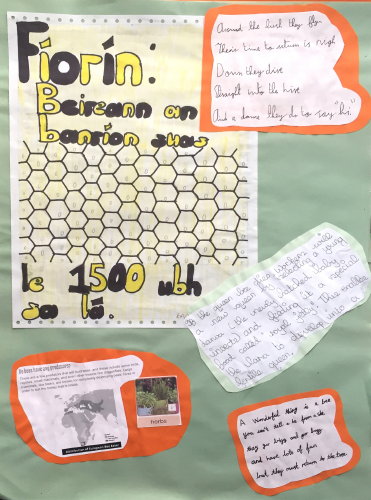 Fíorín:
Beireann an
banríon suas
le 1500 ubh
sa lá.
Around the bush they fly
Their time to return is nigh
Down they dive
Straight into the hive
And a dance they do to say "hi."
If the queen bee dies workers will
a new queen by selecting a young
larva (the newly hatched baby
insects) and feeding it a special
food called "royal jelly". This enables
the larva to develop into a
fertile queen.
Do bees have any predators?
herbs
Distribution of European Bee Eater
A wonderful thing is a bee
you can't tell a he from a she
they go bizz and go buzz
and have lots of fun
but they must return to the tree.